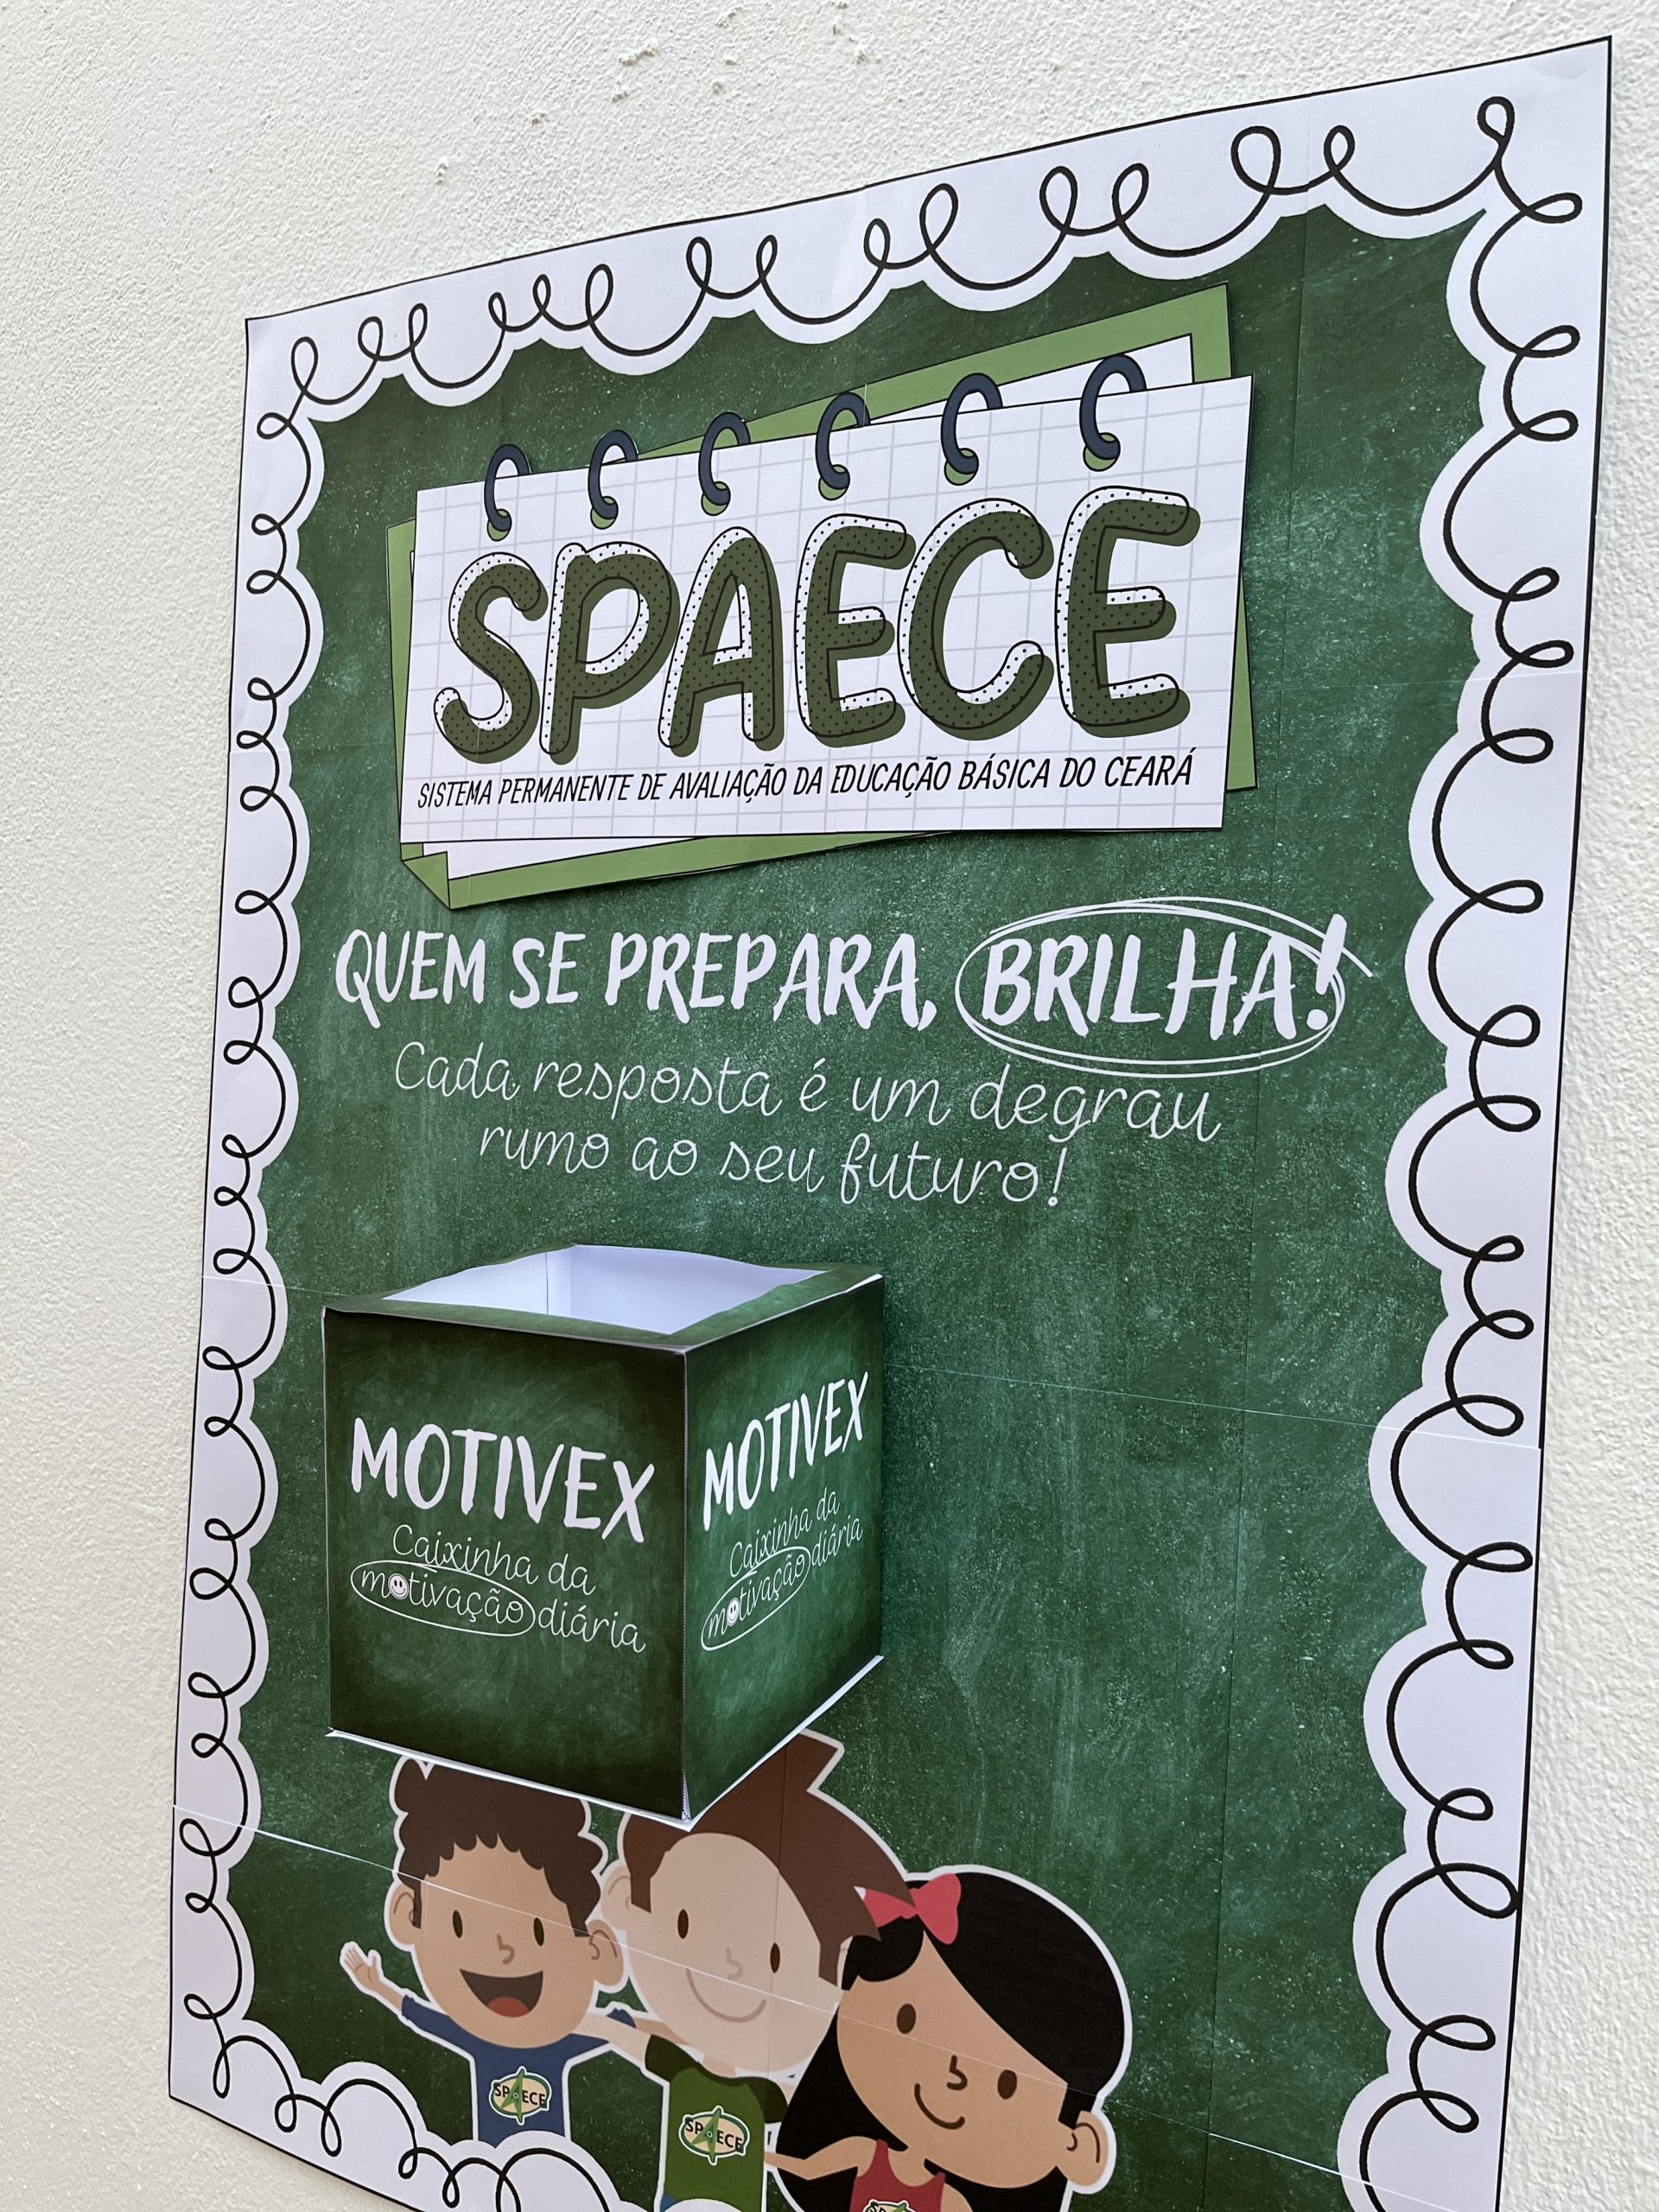 SPAECE
SISTEMA PERMANENTE DE AVALIAÇÃO DA EDUCAÇÃO BÁSICA DO CEARÁ
QUEM SE PREPARA, BRILHA!
Cada resposta é um degrau
rumo ao seu futuro!
MOTIVEX
Caixinha da
motivação diária
MOTIVEX
Caixinha da
motivação diária
SPAECE
SPAECE